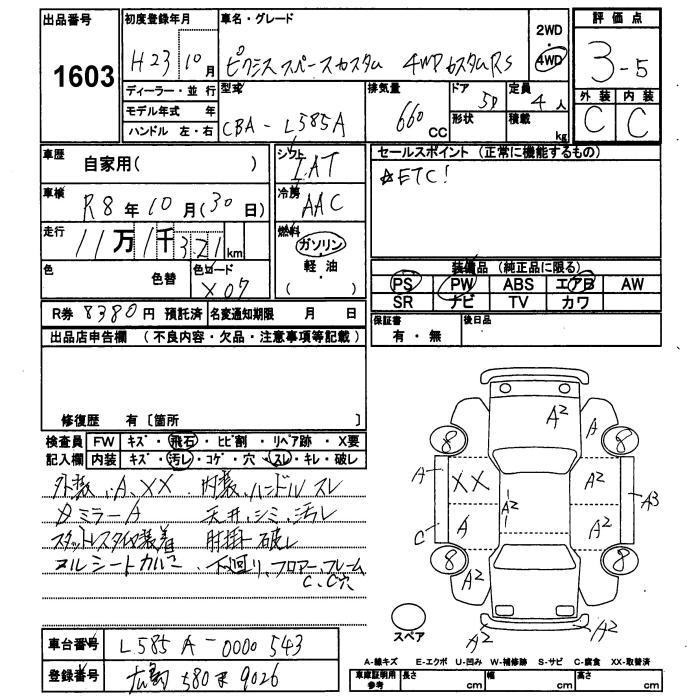 出品番号
1603
初度登録年月
H23 10月
車名・グレード
ピクシス スペースカスタム 4WD カスタムRS
2WD
4WD
評価点
3-5
外装 内装
C C
ディーラー・並行
モデル年式 年
ハンドル 左・右
型式
CBA-L585A
排気量
660 CC
ドア 5D
形状
定員 4人
積載 kg
車歴
自家用( )
シフト
IAT
セールスポイント (正常に機能するもの)
☆ETC!
車検
R8年10月(30日)
冷房
AAC
走行
11万1千321km
燃料
ガソリン
軽・油
( )
色
色替
色コード
X07
装備品 (純正品に限る)
PS PW ABS エアB AW
SR ナビ TV カワ
R券 8380円 預託済
名変通知期限 月 日
保証書
有・無
後日品
出品店申告欄 (不良内容・欠品・注意事項等記載)
修復歴 有〔箇所 〕
検査員 FW キズ・飛石・ヒビ割・リペア跡・X要
記入欄 内装 キズ・汚レ・コゲ・穴・スレ・キレ・破レ
外装、A、XX 内装、ハンドルスレ
ミラーA 天井、シミ、汚レ
スタットレスタイヤ装着 肘掛ケ破レ
下回り、フロアー、フレーム
C、C穴
A2
A
8
8
A
XX
A2
A3
A2
C
A
A2
8
8
A2
A2
A2
スペア
車台番号
L585A-0000543
登録番号
広島 580 ま 9026
A-線キズ E-エクボ U-凹み W-補修跡 S-サビ C-腐食 XX-取替済
車庫証明用
参考
長さ cm 幅 cm 高さ cm